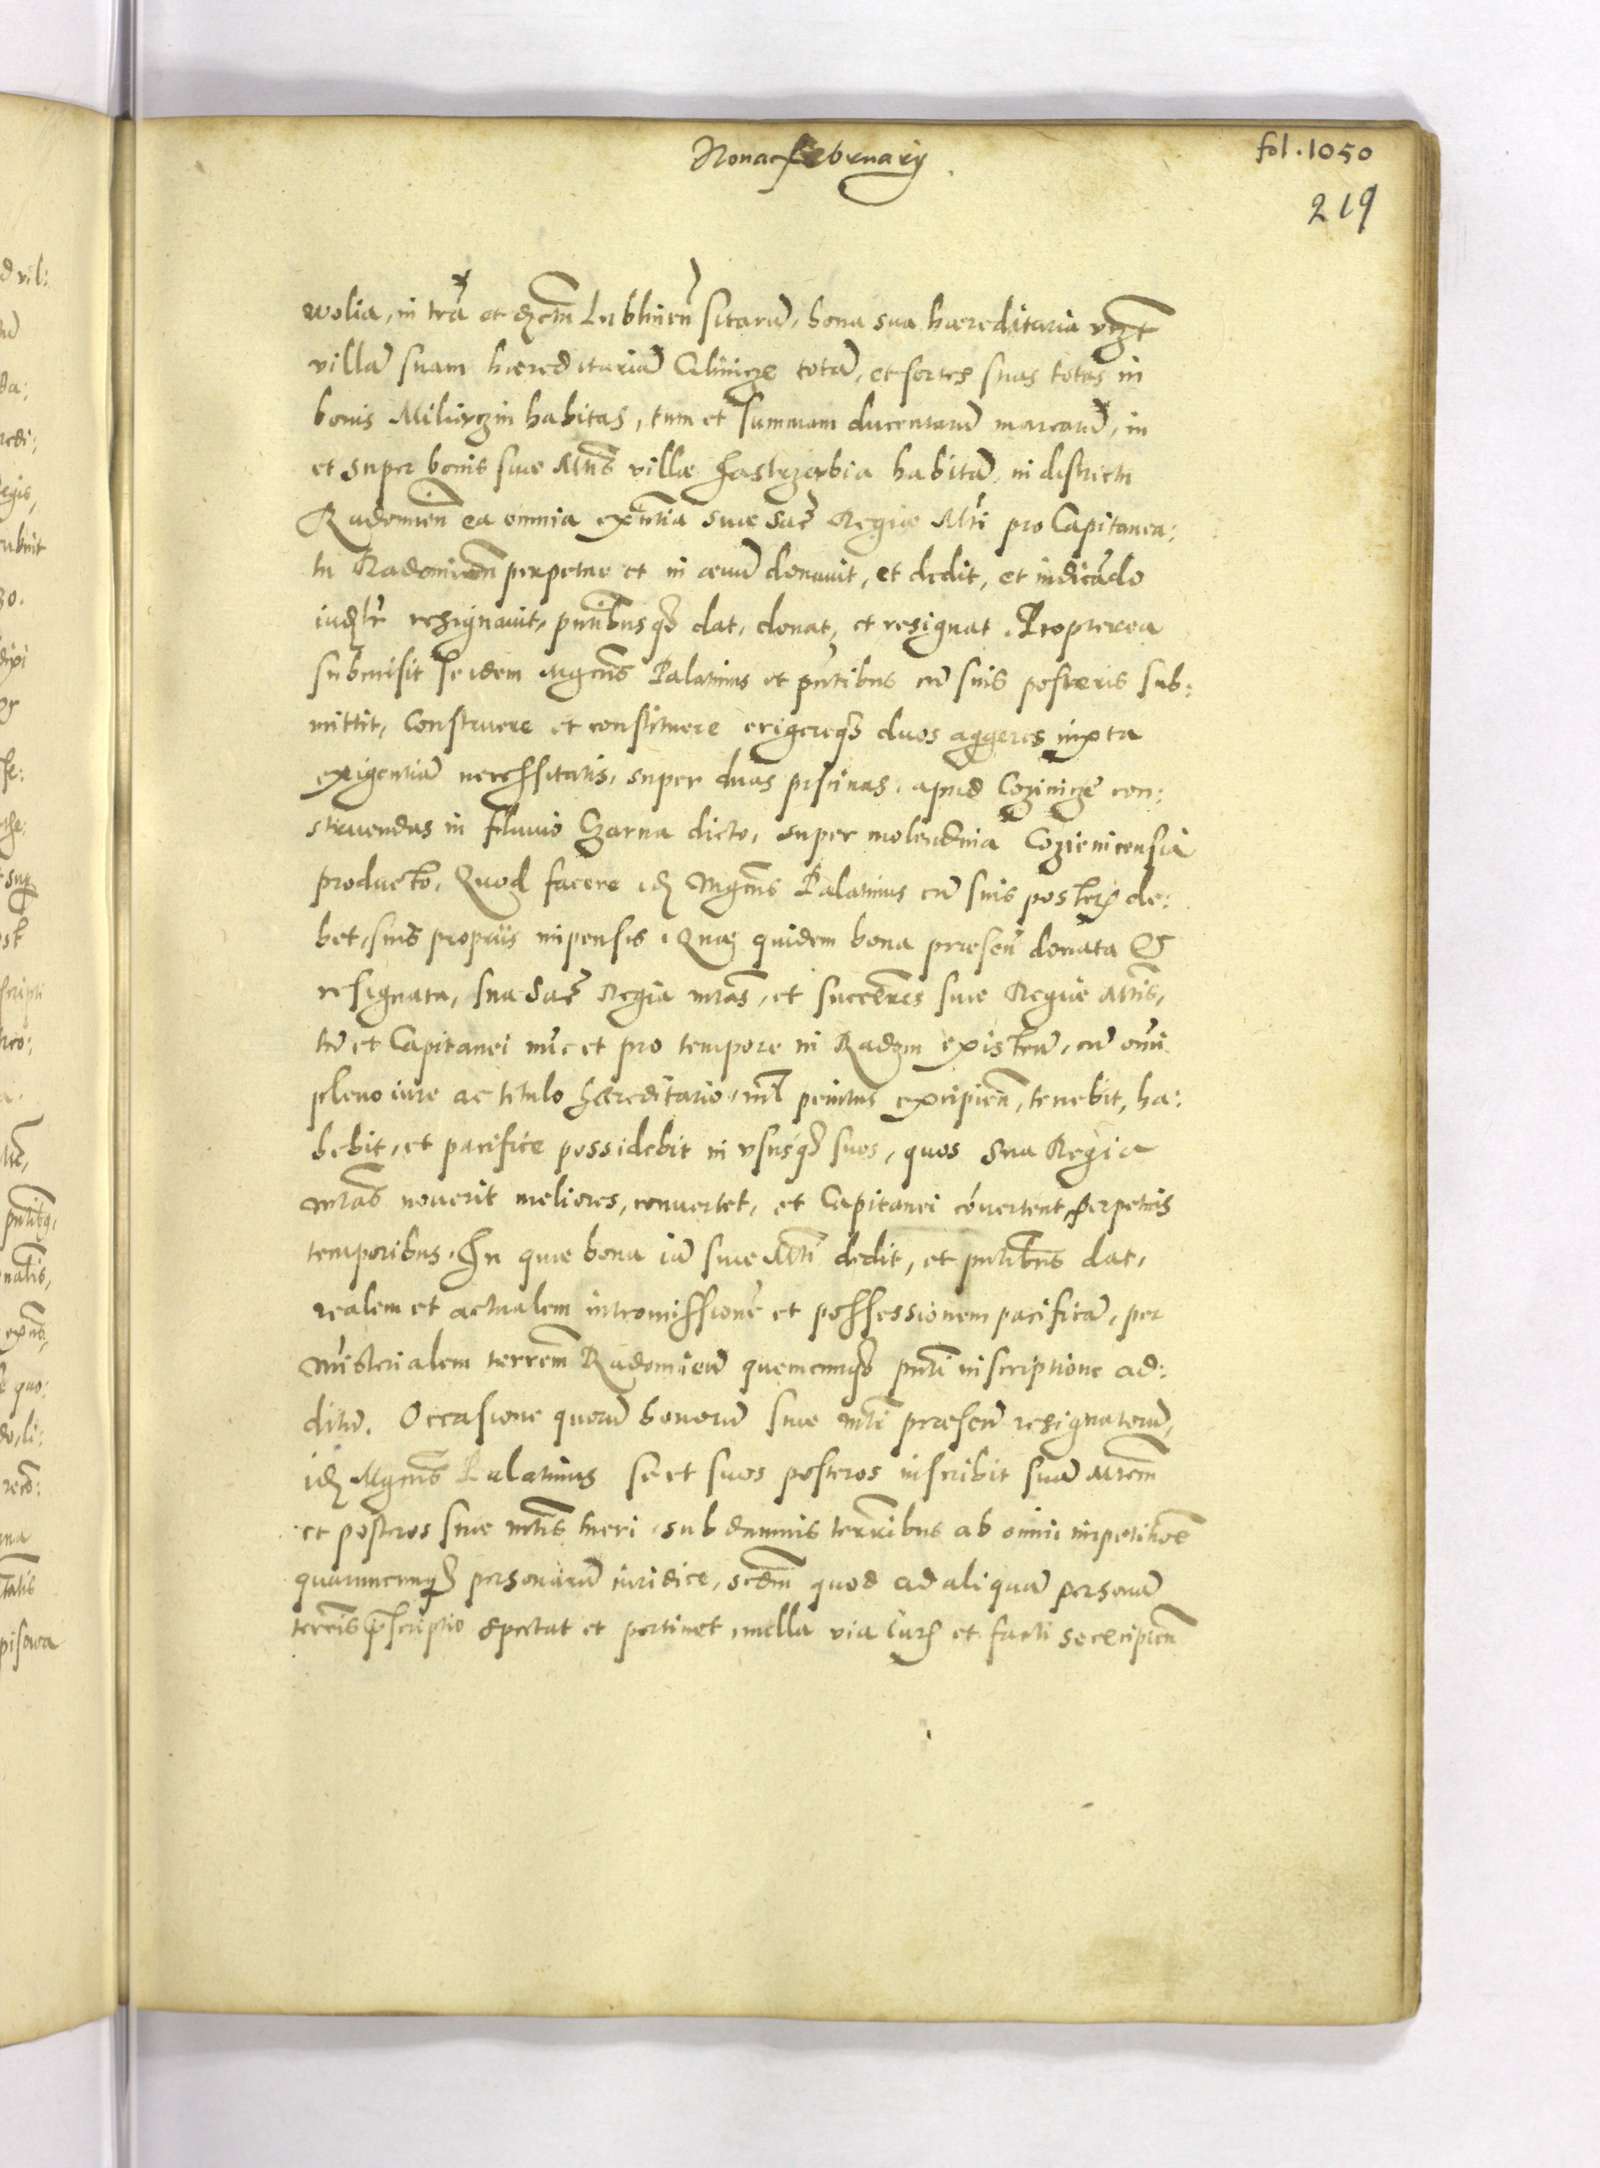 Nona february
fol. 1050
219
wolia, in tra et dzcm Lublinen sitaru, bona sua hæreditaria vzt
villa suam hæreditaria totã, et sortes suas totas in
bonis habitas, tum et summam ducentaru marcaru, in
et super bonis suæ Mtis villæ Jastrzębia habitã, in districtu
Radomien ea omnia exntia suæ Sac Regiæ Mti pro Capitanea:
tu Radomien perpetue et in ævũ donauit, et dedit, et indicãdo
iudlr resignauit, pntibusq dat, donat, et resignat. Propterea
submisit se idem Mgcus Palatinus et pntibus cũ suis posteris sub:
mittit, Construere et constituere erigereq duos aggeres iuxta
exigentiã necessitatis, super duas piscinas, apud con:
struendas in fluuio Czarna dicto, super molendina Cozienicensia
producto. Quod facere idz Mgcus Palatinus cũ suis poster de:
bet, suis propriis impensis. Quæ quidem bona præsen donata &
resignata, sua Sac Regia mtas, et succeres suæ Regiæ Mtis,
tũ et Capitanei nũc et pro tempore in Radom existen, cũ omi
pleno iure ac titulo hæreditario, nil penitus excipien, tenebit, ha:
bebit, et pacifice possidebit in vsusq suos, quos Sua Regia
mtas nouerit meliores, conuertet, et Capitanei cõuertent, perpetuis
temporibus. In quæ bona iã suæ Mti dedit, et pntibus dat,
realem et actualem intromissionẽ et possessionem pacificã, per
Misterialem terrem Radomien quemcunq pnti inscriptione ad:
ditũ. Occasione quorũ bonorũ suæ mti præsen resignatorũ,
idz Mgcus Palatinus se et suos posteros inscribit suã Mtem
et posteros suæ mtis tueri, sub damnis terribus ab omni impetitioe
quarumcunq personarũ iuridice, secdm quod ad aliquã personã
terris pscriptio spectat et pertinet, nulla via iur et facti se excipien